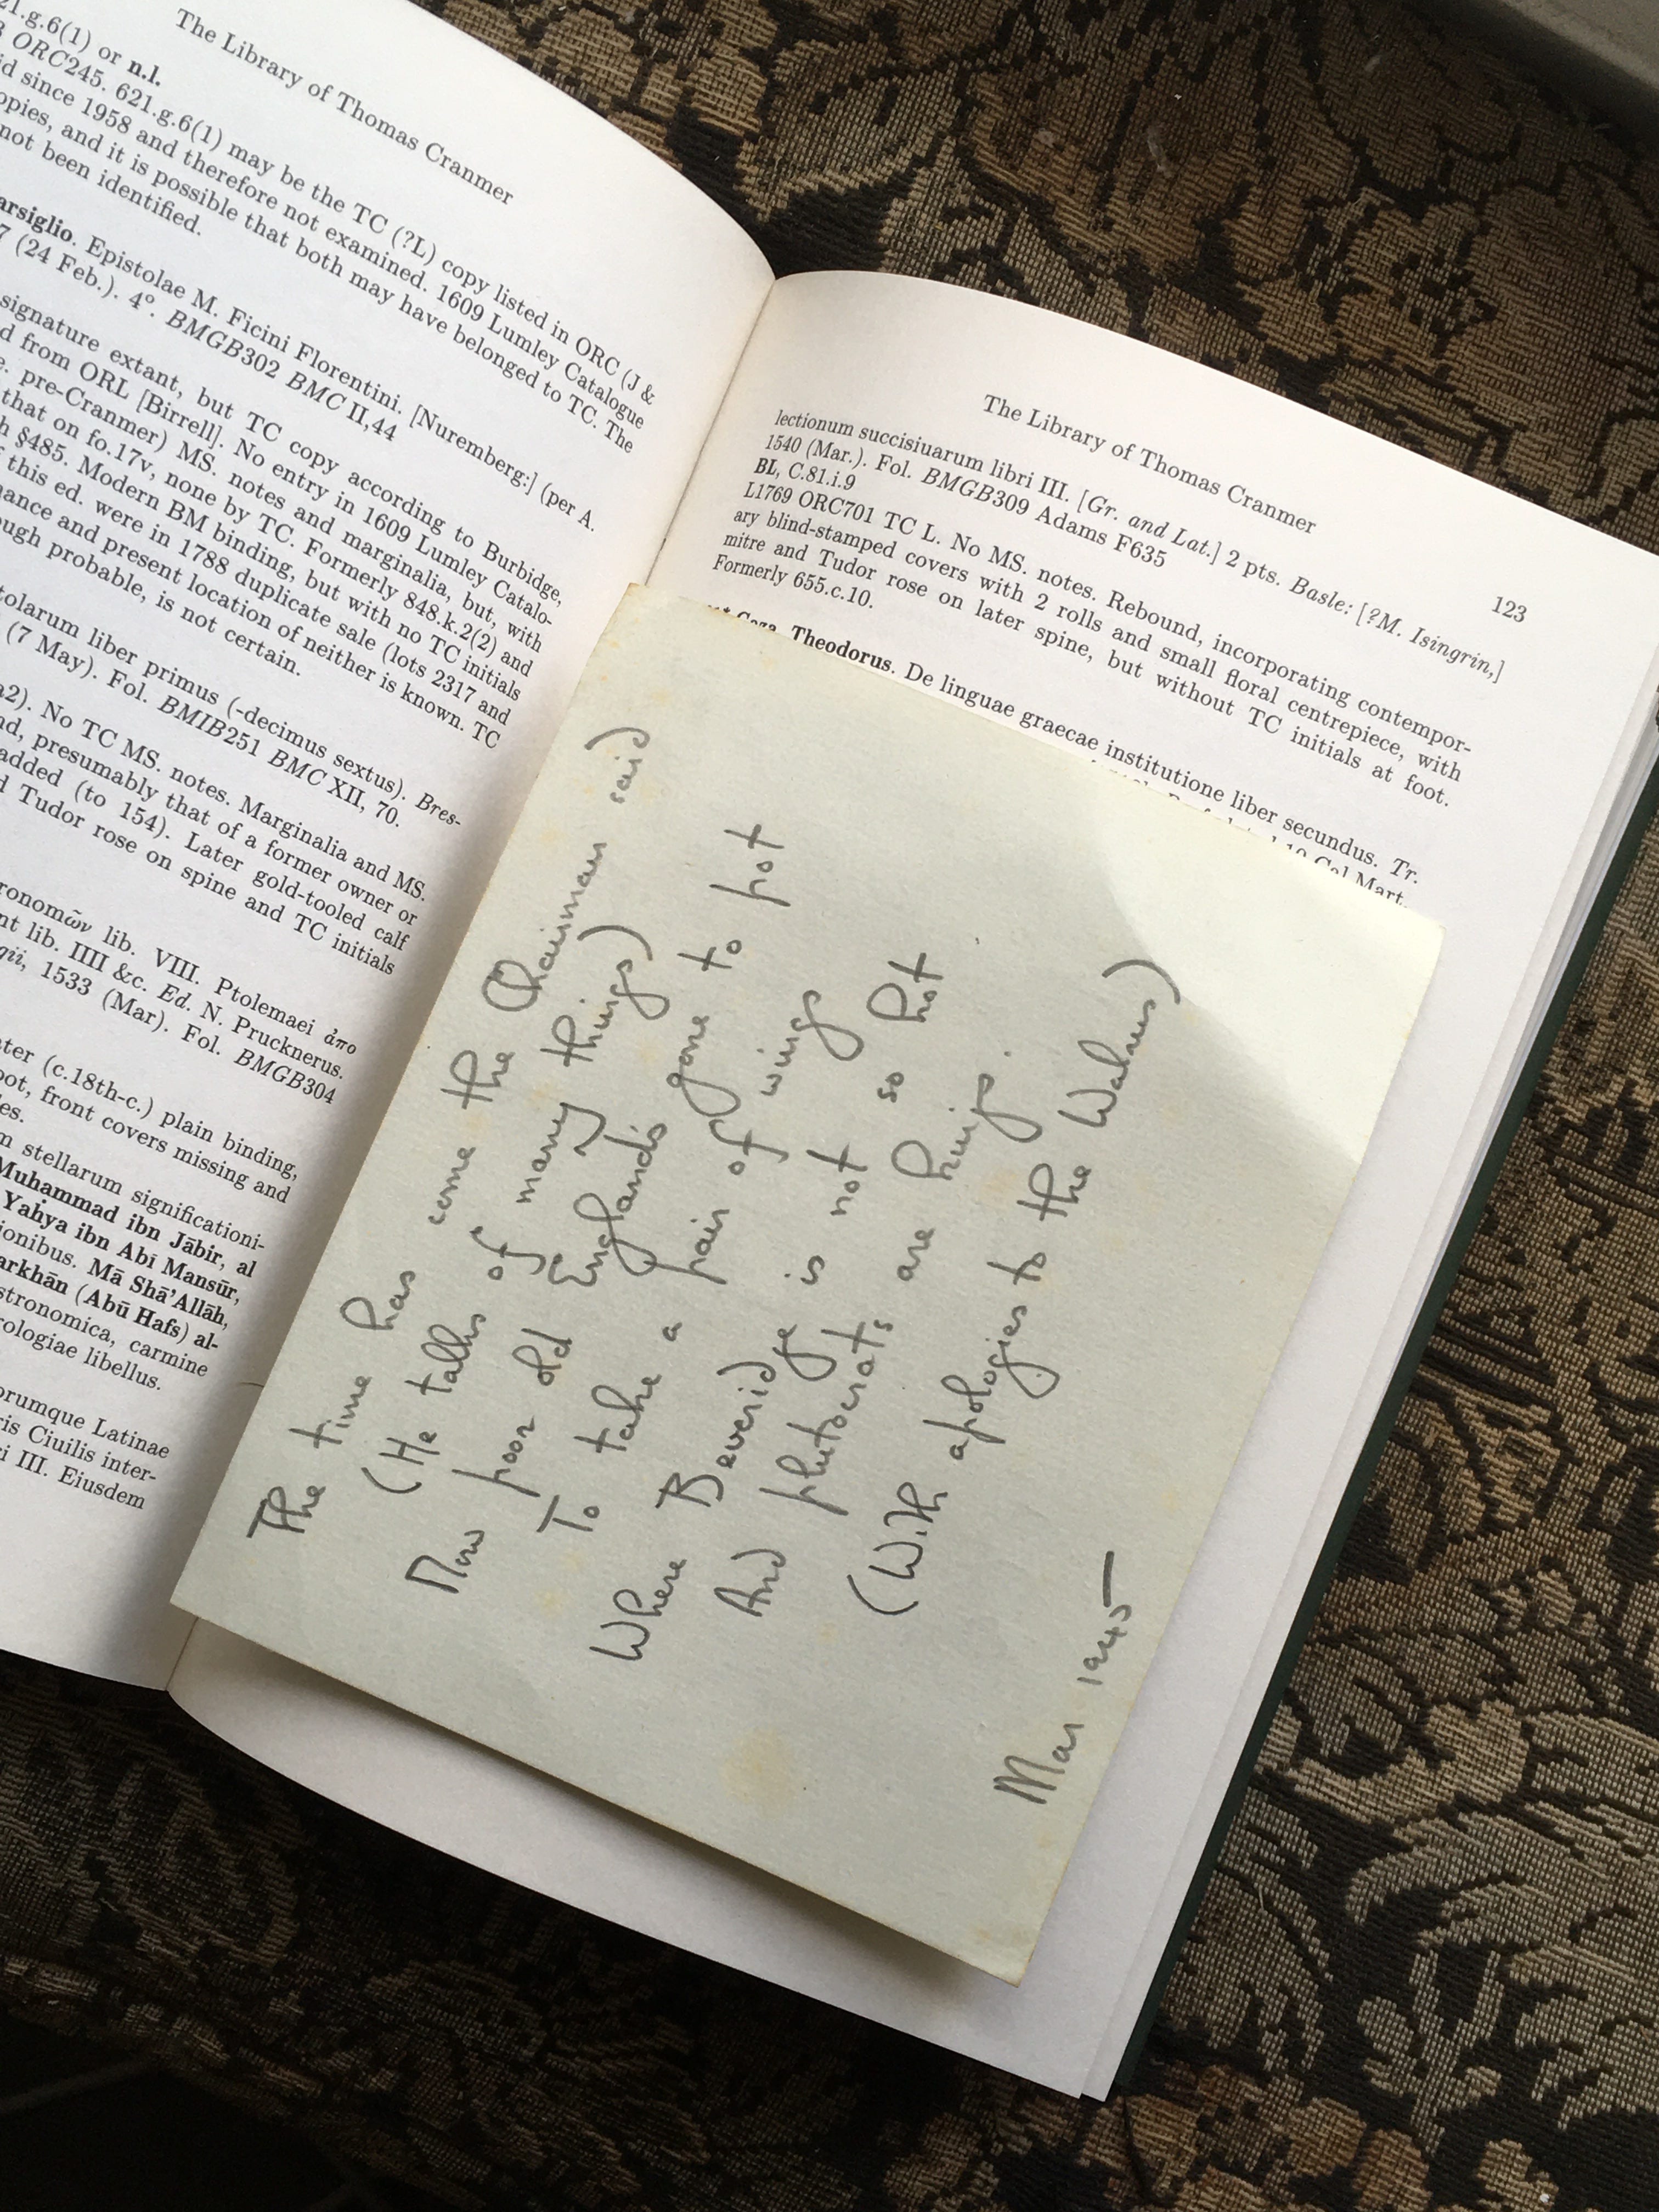 21.g.6(1) or n.l.
ORC245. 621.g.6(1) may be the TC (?L) copy listed in ORC (J &
since 1958 and therefore not examined. 1609 Lumley Catalogue
opies, and it is possible that both may have belonged to TC. The
not been identified.
arsiglio. Epistolae M. Ficini Florentini. [Nuremberg:] (per A.
7 (24 Feb.). 4°. BMGB302 BMC II,44
signature extant, but TC copy according to Burbidge,
d from ORL [Birrell]. No entry in 1609 Lumley Catalo-
e. pre-Cranmer) MS. notes and marginalia, but, with
that on fo.17v, none by TC. Formerly 848.k.2(2) and
h §485. Modern BM binding, but with no TC initials
f this ed. were in 1788 duplicate sale (lots 2317 and
nance and present location of neither is known. TC
ough probable, is not certain.
tolarum liber primus (-decimus sextus). Bres-
(7 May). Fol. BMIB251 BMC XII, 70.
a2). No TC MS. notes. Marginalia and MS.
nd, presumably that of a former owner or
added (to 154). Later gold-tooled calf
d Tudor rose on spine and TC initials
ronomῶν lib. VIII. Ptolemaei ἀπο
nt lib. IIII &c. Ed. N. Prucknerus.
gii, 1533 (Mar). Fol. BMGB304
ater (c.18th-c.) plain binding,
oot, front covers missing and
les.
m stellarum significationi-
Muhammad ibn Jābir, al
Yaḥya ibn Abī Mansūr,
ionibus. Mā Shā'Allāh,
arkhān (Abū Hafs) al-
stronomica, carmine
rologiae libellus.
orumque Latinae
ris Ciuilis inter-
ri III. Eiusdem
The Library of Thomas Cranmer
The Library of Thomas Cranmer
123
lectionum succisiuarum libri III. [Gr. and Lat.] 2 pts. Basle: [?M. Isingrin,]
1540 (Mar.). Fol. BMGB309 Adams F635
BL, C.81.i.9
L1769 ORC701 TC L. No MS. notes. Rebound, incorporating contempor-
ary blind-stamped covers with 2 rolls and small floral centrepiece, with
mitre and Tudor rose on later spine, but without TC initials at foot.
Formerly 655.c.10.
Gaza, Theodorus. De linguae graecae institutione liber secundus. Tr.
Cal Mart.
The time has come the Chairman said
(He talks of many things)
Now poor old England's gone to pot
To take a pair of wings
Where Beveridge is not so hot
And plutocrats are kings.
(With apologies to the Walrus)
Mar 1945